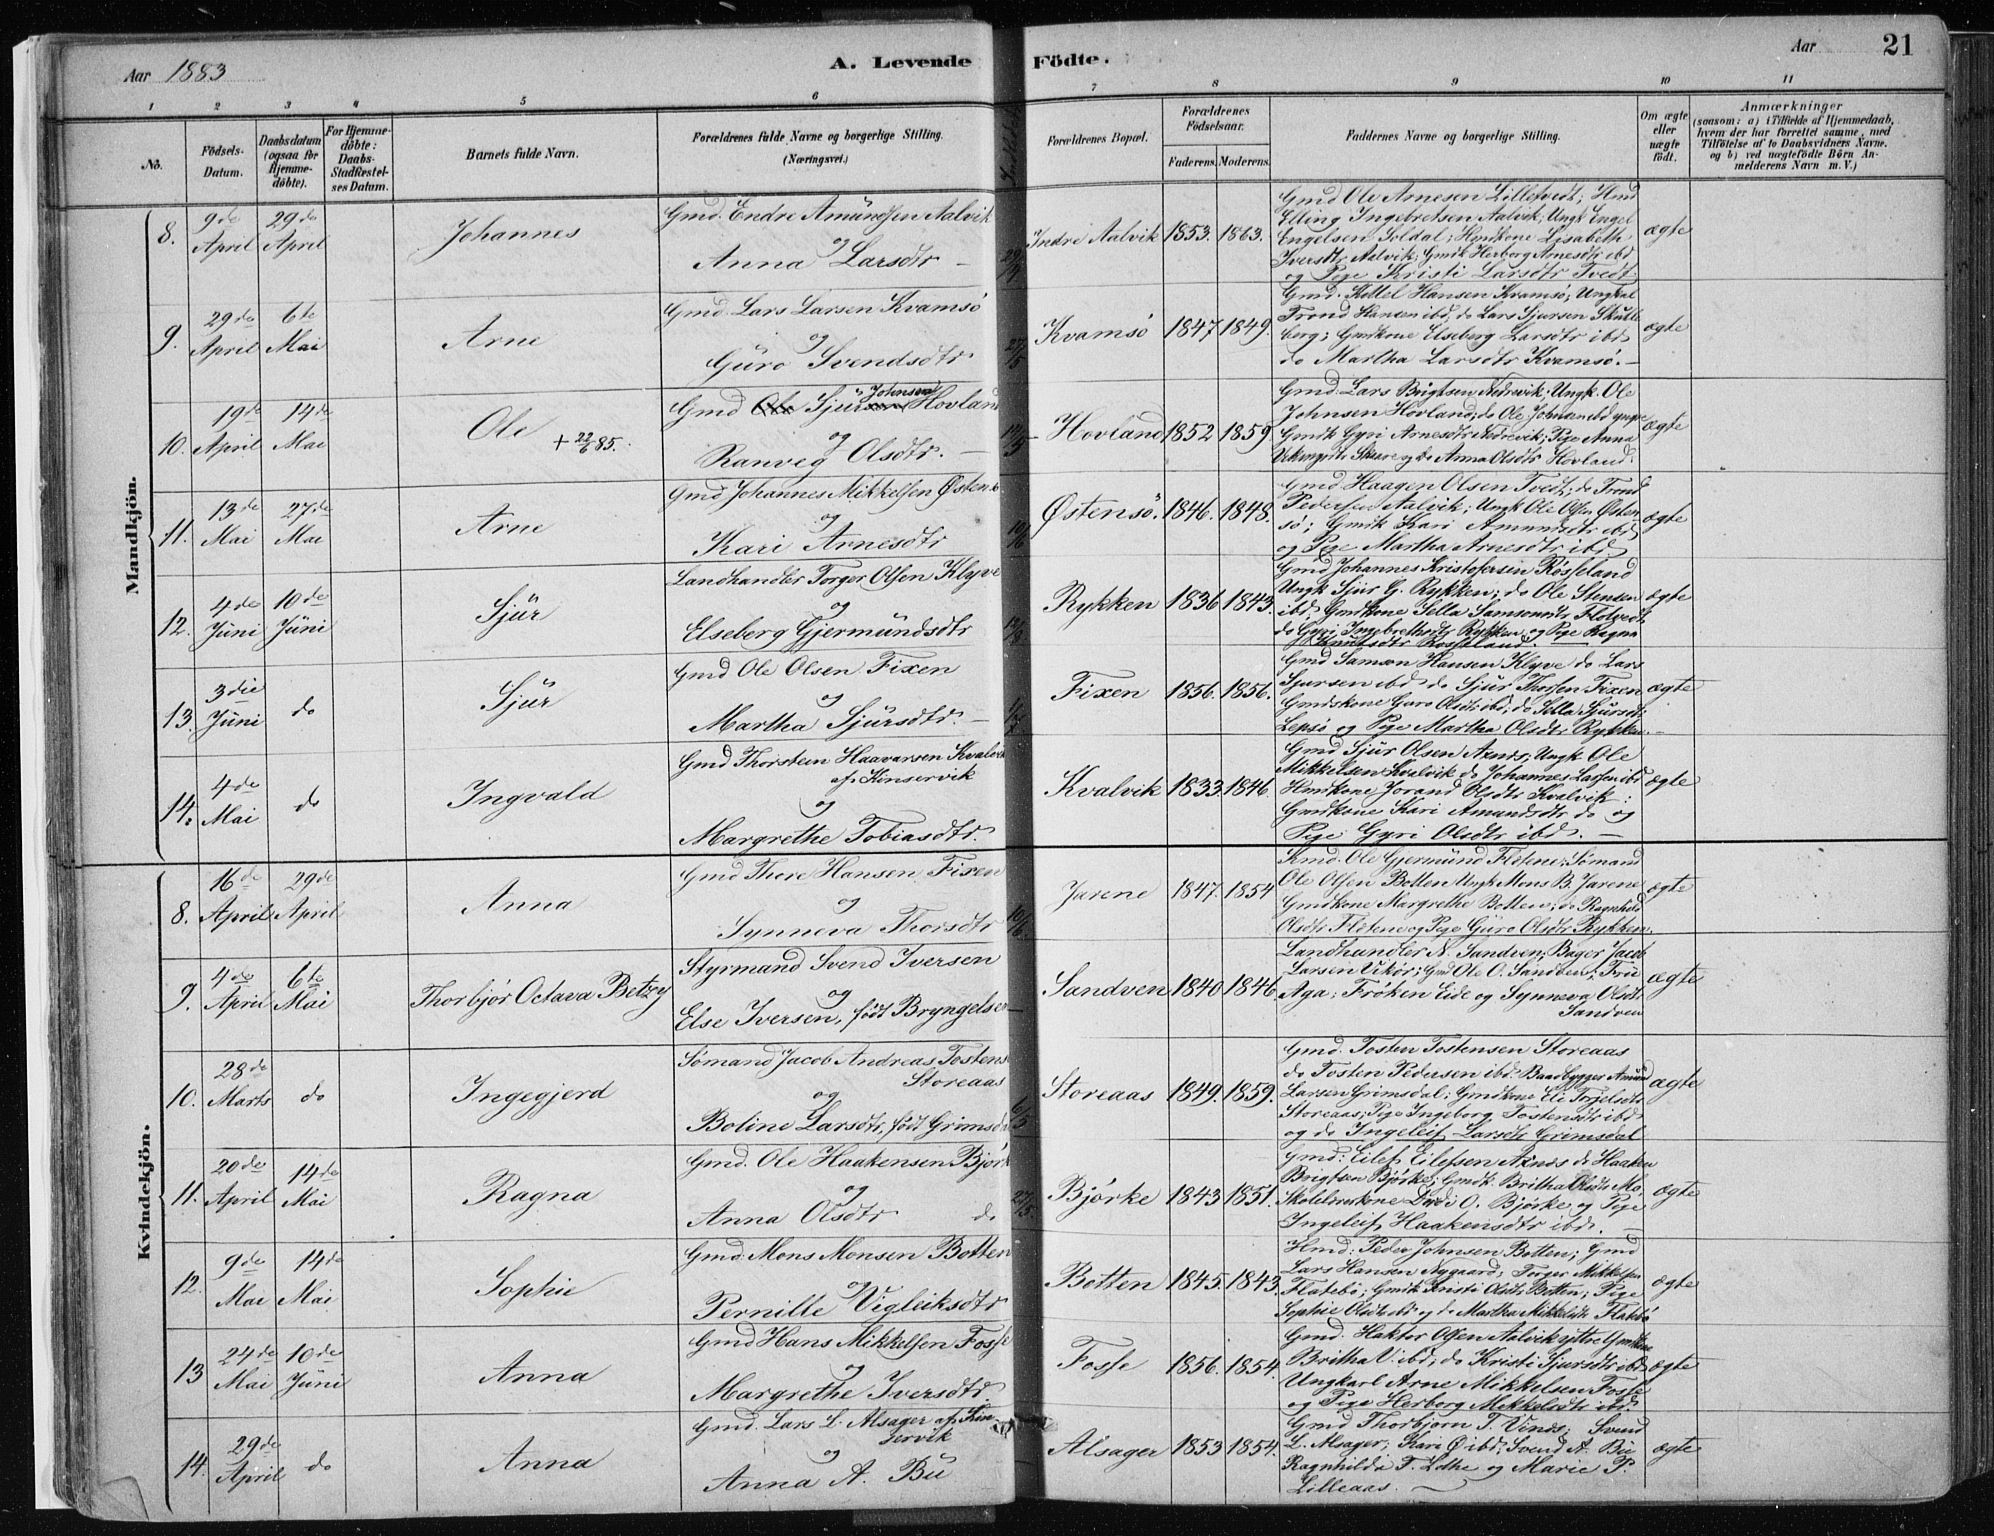 Aar 1883
A. Levende
Födte.
Aar
21
1 2 3 4 5 6 7 8 9 10 11
No.
Födsels-Datum.
Daabsdatum (ogsaa for Hjemmedöbte).
For Hjemmedöbte: Daabs-Stadfestelses Datum.
Barnets fulde Navn.
Forældrenes fulde Navne og borgerlige Stilling. (Næringsvei.)
Forældrenes Bopæl.
Forældrenes Födselsaar.
Faderens. Moderens.
Faddernes Navne og borgerlige Stilling.
Om ægte eller uægte födt.
Anmærkninger
(saasom: a) i Tilfælde af Hjemmedaab, hvem der har forrettet samme, med Tilföielse af to Daabsvidners Navne. og b) ved uægtefödte Börn Anmelderens Navn m. V.)
Mandkjön.
8. 9de April 29de April Johannes Gmd. Endre Amundsen Aalvik og Anna Larsdtr 29/4 Indre Aalvik 1853. 1863.
Gmd Ole Arnesen Lilletvedt; Hmd
Elling Ingebretsen Aalvik; Ungk Engel
Engelsen Soldal; Hmdkone Lisabeth
Iversdtr Aalvik; Gmdk Herborg Arnesdtr ibd
og Pige Kristi Larsdtr Tvedt
ægte
9. 29de April 6te Mai Arne Gmd. Lars Larsen Kvamsö og Guro Svendsdtr 27/5 Kvamsö 1847 1849.
Gmd. Kittel Hansen Kvamsö; Ungkal
Trond Hansen ibd, do Lars Sjursen Skutle
berg; Gmdkone Elseberg Larsdtr ibd
do Martha Larsdtr Kvamsö.
ægte
10. 19de April 14de Mai Ole + 22/6 85. Gmd Ole Sjursen Johnsen Hovland og Ranveg Olsdtr. Hovland 1852 1859
Gmd. Lars Brigtsen Nedrevik; Ungk. Ole
Johnsen Hovland; do Ole Johnsen ibd yngre
Gmdk Gyri Arnesdtr Nedrevik; Pige Anna
Vikingsdtr Skaare og do Anna Olsdtr Hovland.
ægte
11. 13de Mai 27de Mai Arne Gmd Johannes Mikkelsen Östensö og Kari Arnesdtr 10/6 Östensö. 1846. 1848.
Gmd Haagen Olsen Tvedt; do Trond
Pedersen Aalvik; Ungk Ole Olsen Östen
sö; Gmdk Kari Amundsdtr ibd
og Pige Martha Arnesdtr ibd
ægte
12. 4de Juni 10de Juni Sjur Landhandler Torger Olsen Klyve og Elseberg Gjermundsdtr Rykken 1836 1843.
Gmd Johannes Kristofersen Rösseland
Ungk Sjur G. Rykken; do Ole Stensen
ibd; Gmdkone Sella Samsonsdtr Flotvedt
do Gyri Ingebrethsdtr Rykken og Pige Ragna
Knutsdtr Rosseland.
ægte
13. 3die Juni do Sjur Gmd Ole Olsen Fixen og Martha Sjursdtr. 1/7 Fixen 1856. 1856.
Gmd Samson Hansen Klyve do Lars
Sjursen ibd do Sjur Thorsen Fixen
Gmdskone Guro Olsdtr ibd; do Sella Sjursdtr
Lepsö og Pige Martha Olsdtr Rykken.
ægte
14. 4de Mai do Ingvald Gmd Thorstein Haavarsen Kvalvik af Kinservik og Margrethe Tobiasdtr. Kvalvik 1833. 1846.
Gmd Sjur Olsen Axnes; Ungk Ole
Mikkelsen Kvalvik do Johannes Larsen ibd
Hmdkone Jorand Olsdtr Kvalvik;
Gmdkone Kari Amundsdtr do og
Pige Gyri Olsdtr ibd.
ægte
Kvindekjön.
8. 16de April 29de April Anna Gmd Thore Hansen Fixen og Synneva Thorsdtr 10/6 Jarene 1847. 1854
Gmd. Ole Gjermund Flotene; Sömand
Ole Olsen Botten Ungk Mons B. Jarene
Gmdkone Margrethe Botten; do Ragnhild
Olsdtr Flotene og Pige Guro Olsdtr Rykken.
ægte
9. 4de April 6te Mai Thorbjör Octava Betzy Styrmand Svend Iversen og Else Iversen, född Bryngelsen Sandven 1840 1846
Landhandler N. Sandven; Bager Jacob
Larsen Vikör; Gmd Ole O. Sandven; Frue
Aga; Fröken Eide og Synneva Olsdtr
Sandven
ægte
10. 28de Marts do Ingegjerd Sömand Jacob Andreas Tostens Storeaas og Boline Larsdtr, född Grimsdal 6/5 Storeaas 1849. 1859.
Gmd. Tosten Tostensen Storeaas
do Tosten Pedersen ibd. Baadbygger Amund
Larsen Grimsdal; Gmdkone Eli Torgelsdtr
Storeaas; Pige Ingeborg Tostensdtr ibd
og do Ingeleif Larsdtr Grimsdal
ægte
11. 20de April 14de Mai Ragna Gmd. Ole Haakensen Björke og Anna Olsdtr do 27/5 Björke 1843 1851.
Gmd: Eilef Eilefsen Axnes do Haaken
Brigtsen Björke; Gmdk. Britha Olsdtr Mo,
Skolelærerkone Durdi O. Björke og Pige
Ingeleif Haakensdtr ibd.
ægte
12. 9de Mai 14de Mai Sophie Gmd. Mons Monsen Botten og Pernille Vigleiksdtr Botten 1845. 1843.
Hmd: Peder Johnsen Botten; Gmd
Lars Hansen Nygaard; Torger Mikkelsen
Flatebö; Gmdk Kristi Olsdtr Botten; Pige
Sophie Olsdtr ibd og do Martha Mikkelsdtr Flatebö
ægte
13 24de Mai 10de Juni Anna Gmd Hans Mikkelsen Fosse og Margrethe Iversdtr. Fosse 1856. 1854.
Gmd. Haktor Olsen Aalvik ytre Gmdkone
Britha V. ibd; do Kristi Sjursdtr ibd
Ungkarl Arne Mikkelsen Fosse
og Pige Herborg Mikkelsdtr ibd
ægte
14. 29de April do Anna Gmd. Lars L. Alsager af Kinservik og Anna A. Bu Alsager 1853 1854.
Gmd Thorbjorn T. Vines; Svend
L. Alsager; Kari Ö ibd; Svend A. Bu
Ragnhilda T. Lothe og Marie P.
Lilleaas.
ægte